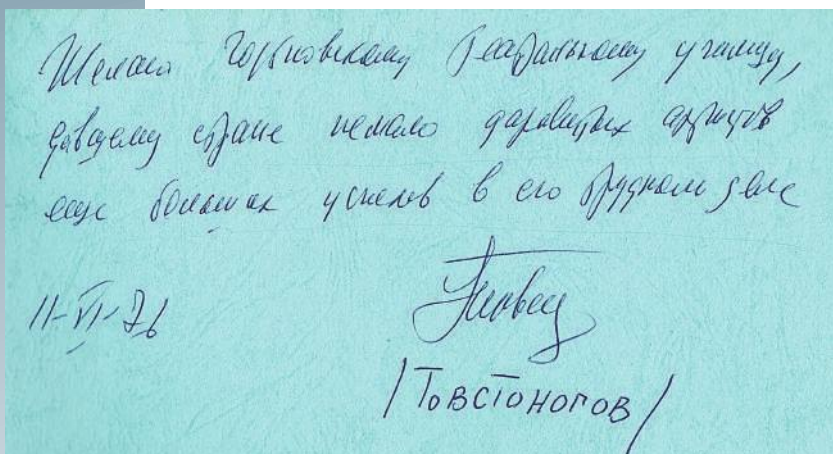 Желаю Горьковскому театральному училищу,
давшему стране немало даровитых артистов
еще больших успехов в его трудном деле
11-VI-76
/Товстоногов/